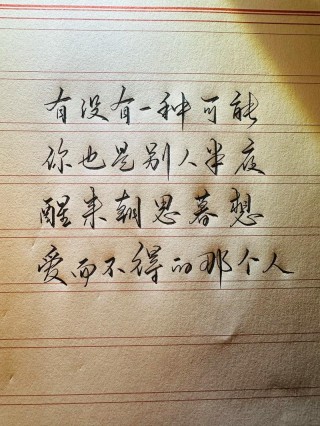 有没有一种可能
你也是别人半夜
醒来朝思暮想
爱而不得的那个人